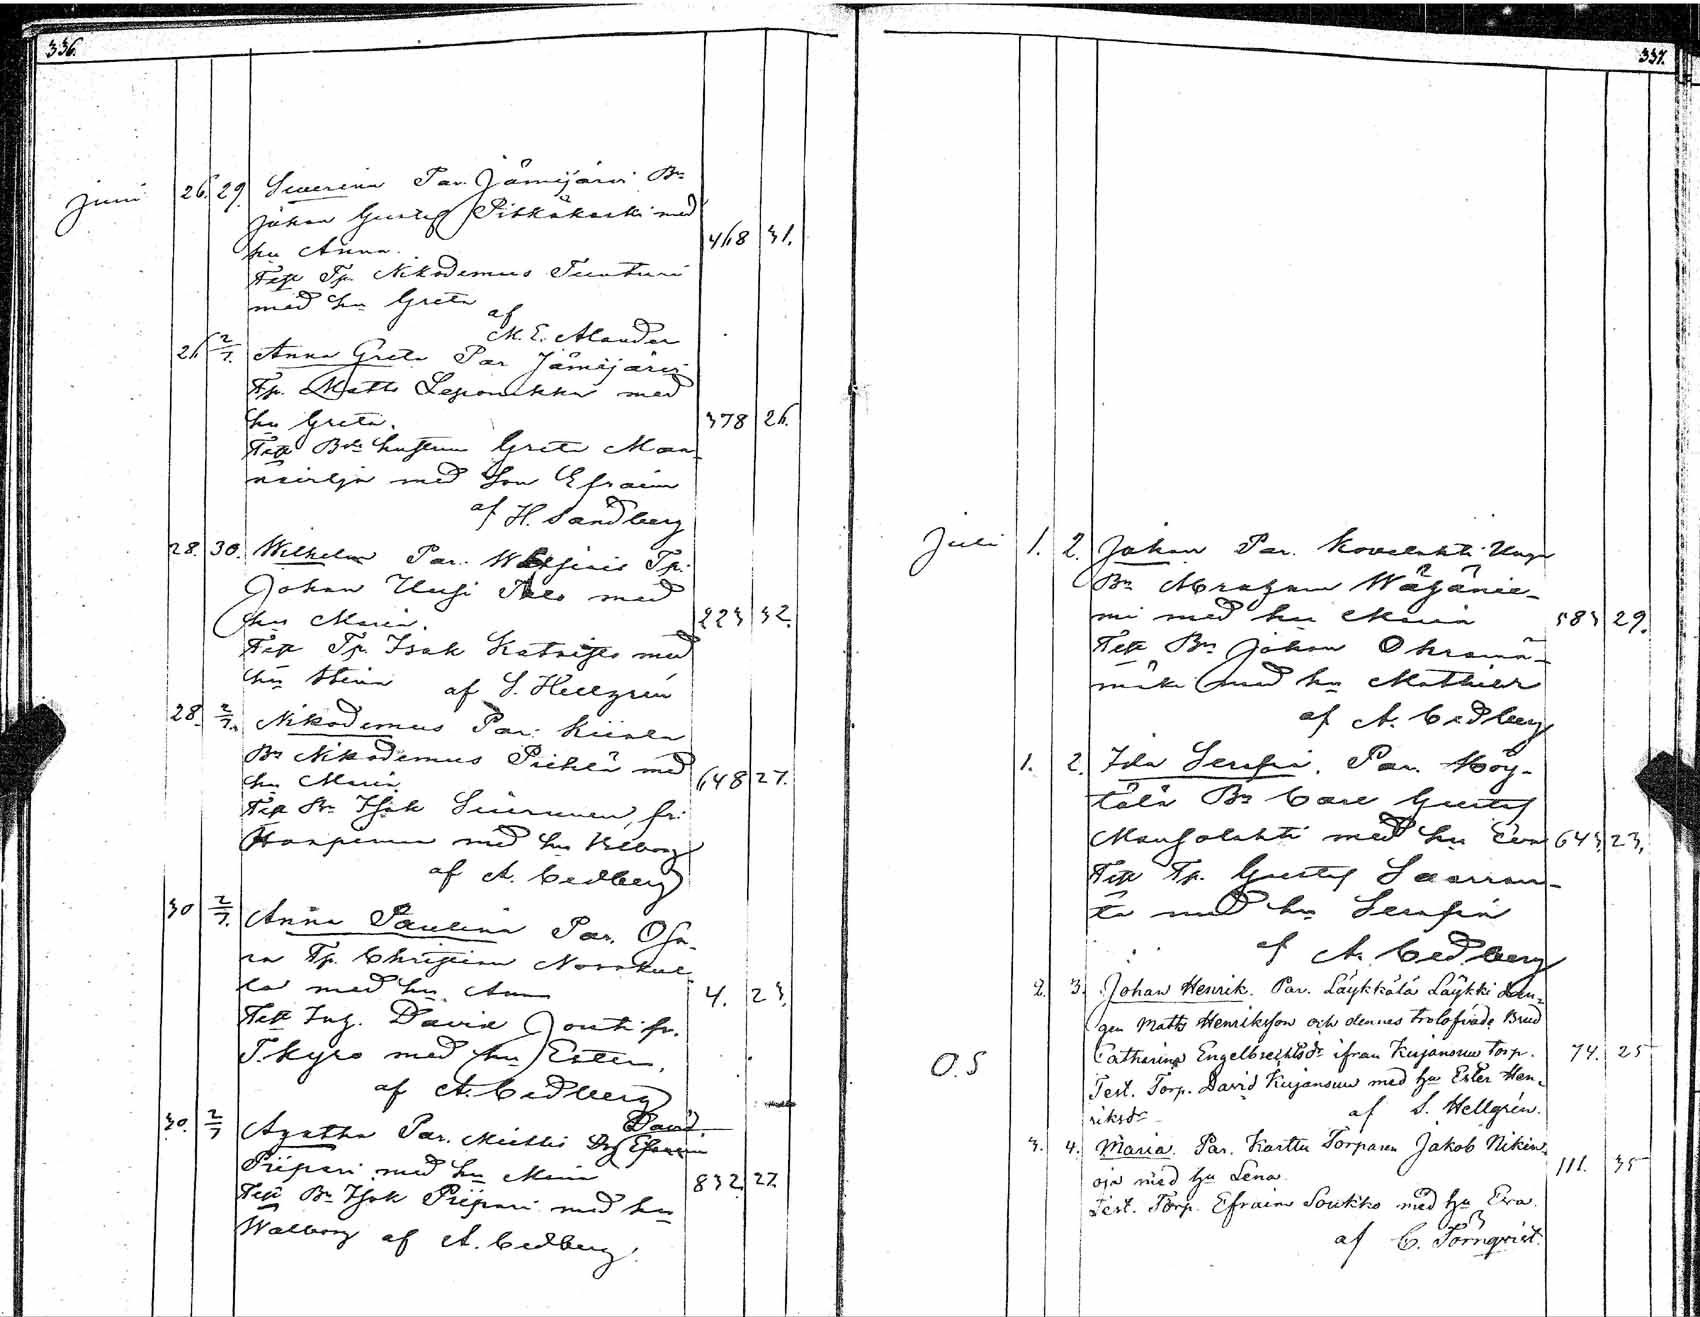 336.
juni 26. 29. Severina Par. Jämijärvi Bn
Johan Gustaf Pitkäkoski med
hu Anna. 468 31.
Test Tp. Nikodemus Tunturi
med hu Greta
af
M. E. Alander
26 2/7. Anna Greta Par Jämijärvi
Tp. Matts Leponikka med
hu Greta. 378 26.
Test Bde hustrun Greta Man-
med Son Efraim
af H. Sandberg
28. 30. Wilhelm Par. Tp.
Johan Uusi Talo med
hu Maria. 223 32.
Test Tp. Isak med
hu Stina af S. Hellgrén
28. 2/7. Nikodemus Par. Kiiala
Bn Nikodemus med
hu Maria. 648 27.
Test Bn Isak fr.
med hu Walborg
af A. Cedberg
30 2/7. Anna Paulina Par. Osa-
ra Tp. Christian
la med hu Anna 4. 23.
Test Inh. David Jouti fr.
T.kyro med hu Ester.
af A. Cedberg
David
30. 2/7 Agatha Par. Miettis Efraim
Piipari med hu Maria 832. 27.
Test Bn Isak Piipari med hu
Walborg af A. Cedberg.
337.
juli 1. 2. Johan Par. Kovelahti
Bn Abraham Wähänie-
mi med hu Maria 583 29.
Test Bn Johan
mäki med hu Mathilda
af A. Cedberg
1. 2. Ida Serafia. Par. Röy-
tälä Bn Carl Gustaf
Mansolahti med hu Eva 643. 23.
Test Tp. Gustaf Saarran-
ta med hu Serafia
af A. Cedberg
2. 3. Johan Henrik. Par. Läykkälä Läykki Drän-
gen Matts Henriksson och dennes trolofvade Brud
Catharina Engelbrechtsdr ifrån Kujansuu torp. 74. 25
O. S
Test. Torp. David Kujansuu med hu Ester Hen-
riksdr af S. Hellgrén.
3. 4. Maria. Par. Karttu Torparen Jakob Nikin-
oja med hu Lena. 111. 35
Test. Torp. Efraim Soukko med hu Eva.
af C. Törnqvist.